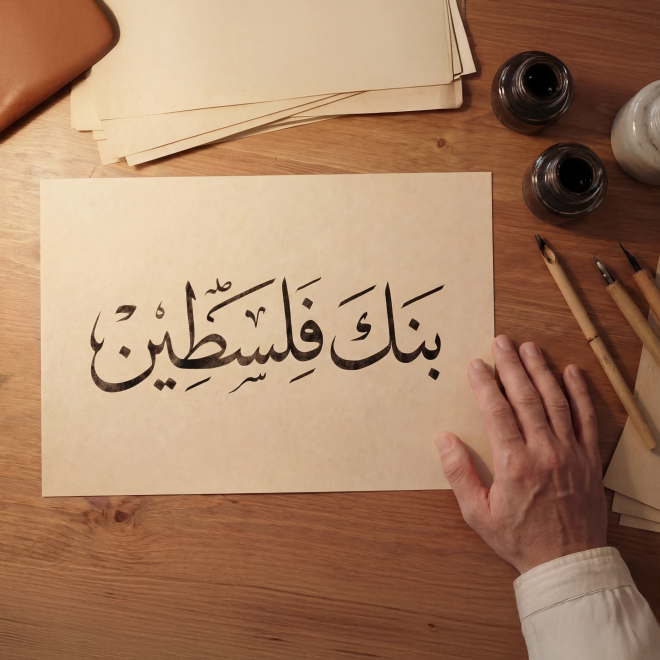 بنك فلسطين